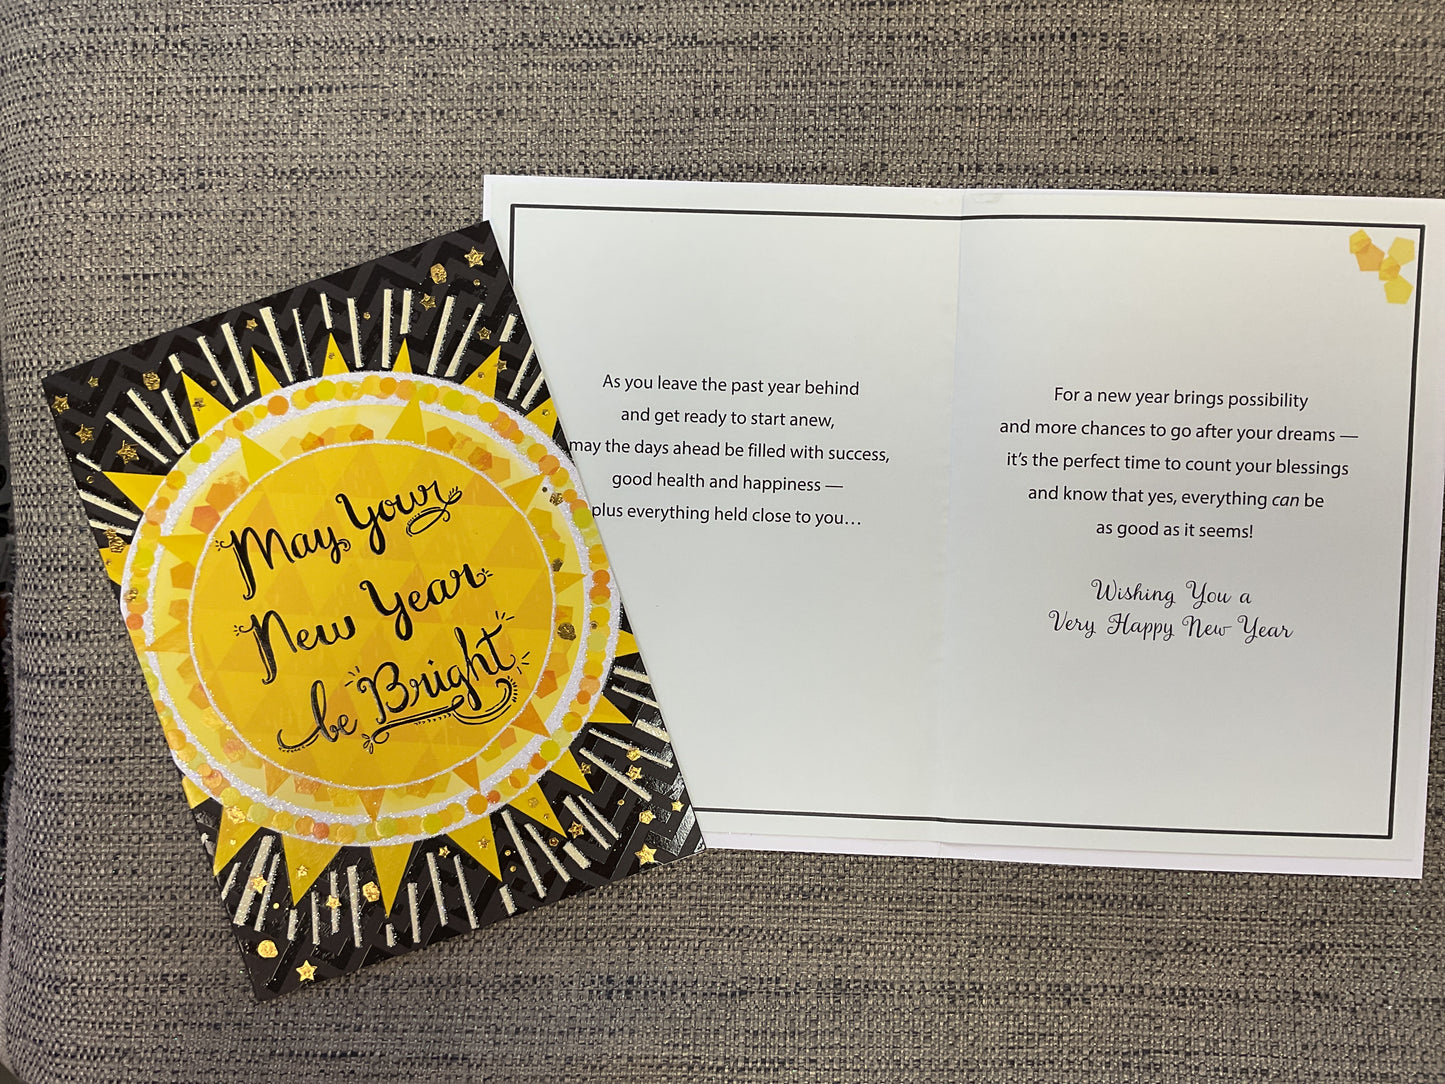 May Your
New Year
be Bright
As you leave the past year behind
and get ready to start anew,
may the days ahead be filled with success,
good health and happiness —
plus everything held close to you…
For a new year brings possibility
and more chances to go after your dreams —
it's the perfect time to count your blessings
and know that yes, everything can be
as good as it seems!
Wishing You a
Very Happy New Year